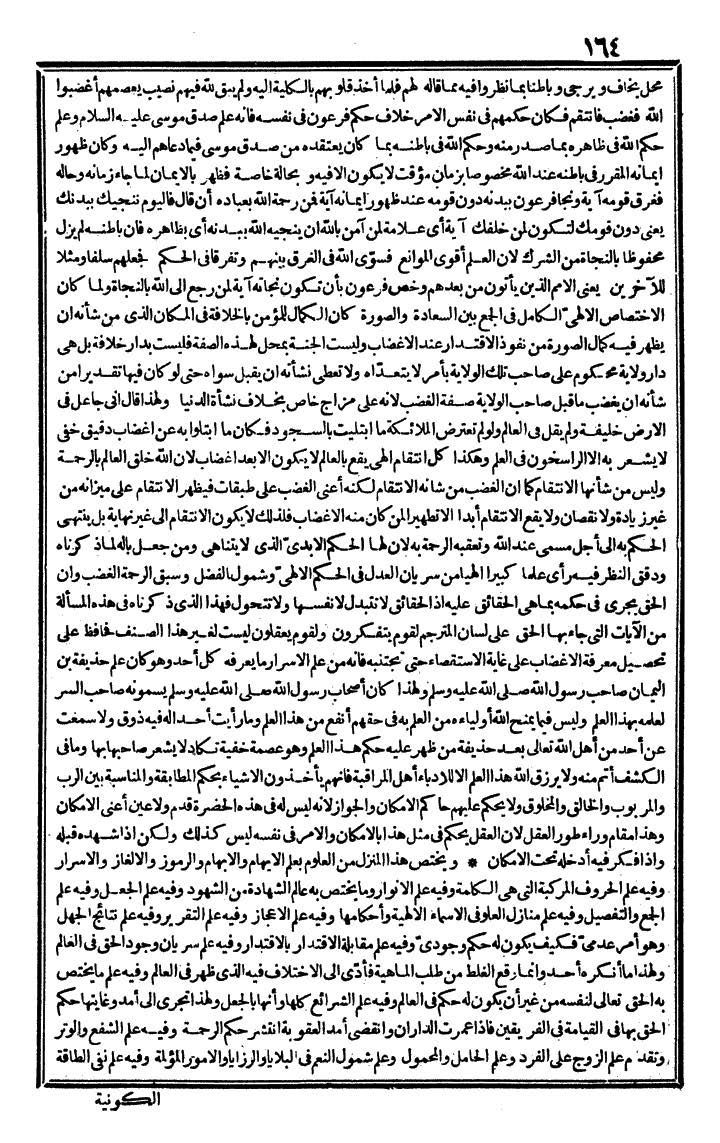 ١٦٤
محل يخاف ويرجى وباطنا بما نظروا فيه مما قاله لهم فلما أخذ قلوبهم بالكلية اليه ولم يبق لله فيهم نصيب يعصمهم أغضبوا
الله فغضب فانتقم فكان حكمهم فى نفس الامر خلاف حكم فرعون فى نفسه فانه علم صدق موسى عليه السلام وعلم
حكم الله فى ظاهره بما صدر منه وحكم الله فى باطنه بما كان يعتقده من صدق موسى فيما دعاهم اليه وكان ظهور
ايمانه المقرر فى باطنه عند الله مخصوصا بزمان مؤقت لا يكون الا فيه وبحالة خاصة فظهر بالايمان لما جاء زمانه وحاله
فغرق قومه آية ونجا فرعون ببدنه دون قومه عند ظهور ايمانه آية فمن رحمة الله بعباده أن قال فاليوم ننجيك ببدنك
يعنى دون قومك لتكون لمن خلفك آية أى علامة لمن آمن بالله ان ينجيه الله ببدنه أى بظاهره فان باطنه لم يزل
محفوظا بالنجاة من الشرك لان العلم أقوى الموانع فسوّى الله فى الغرق بينهم وتفرقا فى الحكم فجعلهم سلفا ومثلا
للآخرين يعنى الامم الذين يأتون من بعدهم وخص فرعون بأن تكون نجاته آية لمن رجع الى الله بالنجاة ولما كان
الاختصاص الالهىّ الكامل فى الجمع بين السعادة والصورة كان الكمال للمؤمن بالخلافة فى المكان الذى من شأنه ان
يظهر فيه كمال الصورة من نفوذ الاقتدار عند الاغضاب وليست الجنة بمحل لهذه الصفة فليست بدار خلافة بل هى
دار ولاية محكوم على صاحب تلك الولاية بأمر لا يتعدّاه ولا تعطى نشأته ان يقبل سواه حتى لو كان فيها تقدير امن
شأنه ان يغضب ما قبل صاحب الولاية صفة الغضب لانه على مزاج خاص بخلاف نشأة الدنيا ولهذا قال انى جاعل فى
الارض خليفة ولم يقل فى العالم ولو لم تعترض الملائكة ما ابتليت بالسجود فكان ما ابتلوا به عن اغضاب دقيق خفى
لا يشعر به الا الراسخون فى العلم وهكذا كل انتقام الهى يقع بالعالم لا يكون الا بعد اغضاب لان الله خلق العالم بالرحمة
وليس من شأنها الانتقام كما ان الغضب من شانه الانتقام لكنه أعنى الغضب على طبقات فيظهر الانتقام على ميزانه من
غير زيادة ولا نقصان ولا يقع الانتقام أبدا الا تطهيرا لمن كان منه الاغضاب فلذلك لا يكون الانتقام الى غير نهاية بل ينتهى
الحكم به الى أجل مسمى عند الله وتعقبه الرحمة به لان لها الحكم الابدىّ الذى لا يتناهى ومن جعل باله لما ذكرناه
ودقق النظر فيه رأى علما كبيرا الهيا من سريان العدل فى الحكم الالهىّ وشمول الفضل وسبق الرحمة الغضب وان
الحق يجرى فى حكمه بما هى الحقائق عليه اذ الحقائق لا تتبدل لانفسها ولا تتحول فهذا الذى ذكرناه فى هذه المسألة
من الآيات التى جاء بها الحق على لسان المترجم لقوم يتفكرون ولقوم يعقلون ليست لغير هذا الصنف فحافظ على
تحصيل معرفة الاغضاب على غاية الاستقصاء حتى تجتنبه فانه من علم الاسرار ما يعرفه كل أحد وهو كان علم حذيفة بن
اليمان صاحب رسول الله صلى الله عليه وسلم ولهذا كان أصحاب رسول الله صلى الله عليه وسلم يسمونه صاحب السر
لعلمه بهذا العلم وليس فيما يمنح الله أولياءه من العلم به فى حقهم أنفع من هذا العلم وما رأيت أحدا له فيه ذوق ولا سمعت
عن أحد من أهل الله تعالى بعد حذيفة من ظهر عليه حكم هذا العلم وهو عصمة خفية تكاد لا يشعر صاحبها بها وما فى
الكشف أتم منه ولا يرزق الله هذا العلم الا للادباء أهل المراقبة فانهم يأخذون الاشياء بحكم المطابقة والمناسبة بين الرب
والمربوب والخالق والمخلوق ولا يحكم عليهم حاكم الامكان والجواز لانه ليس له فى هذه الحضرة قدم ولا عين أعنى الامكان
وهذا مقام وراء طور العقل لان العقل يحكم فى مثل هذا بالامكان والامر فى نفسه ليس كذلك ولكن اذا شهده قبله
واذا فكر فيه أدخله تحت الامكان * ويختص هذا المنزل من العلوم بعلم الايهام والابهام والرموز والالغاز والاسرار
وفيه علم الحروف المركبة التى هى الكلمة وفيه علم الانوار وما يختص به عالم الشهادة من الشهود وفيه علم الجعل وفيه علم
الجمع والتفصيل وفيه علم منازل العلو فى الاسماء الالهية وأحكامها وفيه علم الاعجاز وفيه علم التقرير وفيه علم نتائج الجهل
وهو أمر عدمىّ فكيف يكون له حكم وجودىّ وفيه علم مقابلة الاقتدار بالاقتدار وفيه علم سريان وجود الحق فى العالم
ولهذا ما أنكره أحد وانما وقع الغلط من طلب الماهية فأدّى الى الاختلاف فيه الذى ظهر فى العالم وفيه علم ما يختص
به الحق تعالى لنفسه من غير أن يكون له حكم فى العالم وفيه علم الشرائع كلها وأنها بالجعل ولهذا تجرى الى أمد وغايتها حكم
الحق بها فى القيامة فى الفريقين فاذا عمرت الداران وانقضى أمد العقوبة انتشر حكم الرحمة وفيه علم الشفع والوتر
وتقدّم علم الزوج على الفرد وعلم الحامل والمحمول وعلم شمول النعم فى البلايا والرزايا والامور المؤلمة وفيه علم نفى الطاقة
الكونية